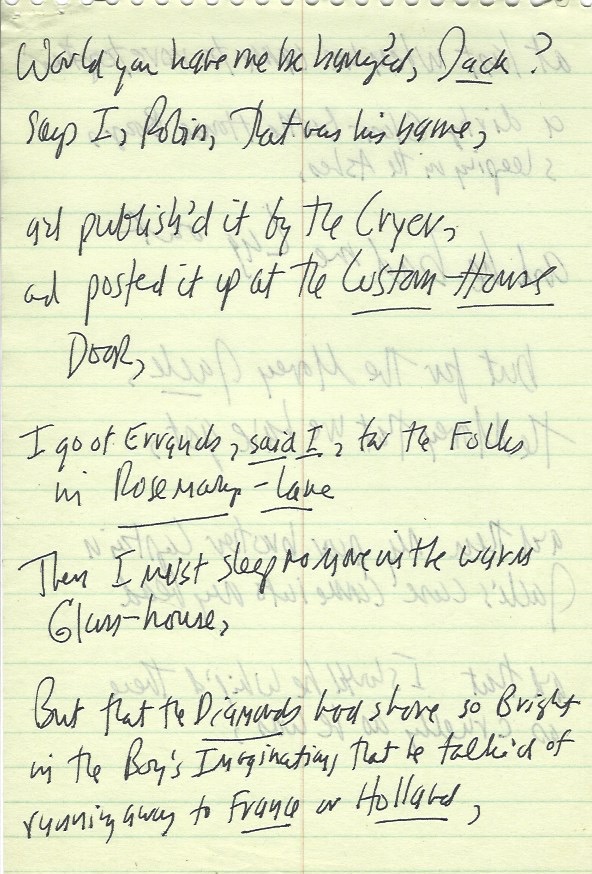 Would you have me be hang'd, Jack?
says I, Robin, that was his name,
and publish'd it by the Cryer,
and posted it up at the Custom-House
Door,
I go of Errands, said I, for the Folks
in Rosemary-Lane
Then I must sleep no more in the warm
Glass-house,
But that the Diamonds had shone so Bright
in the Boy's Imagination, that he talk'd of
running away to France or Holland,